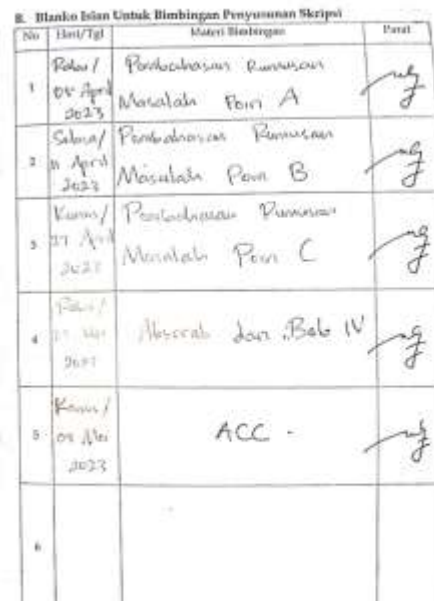 B. Blanko Isian Untuk Bimbingan Penyusunan Skripsi
No Hari/Tgl Materi Bimbingan Paraf
1 Rabu/ April 2023
Pembahasan Rumusan
Masalah Poin A
2 Selasa/ 11 April 2023
Pembahasan Rumusan
Masalah Poin B
3 Kamis/ 27 April 2023
Pembahasan Rumusan
Masalah Poin C
4 Rabu/
Abstrak dan Bab IV
5 Kamis/ Mei 2023
ACC -
6